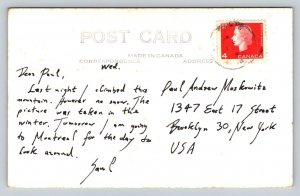 POST CARD
MADE IN CANADA
CORRESPONDENCE
ADDRESS
4
CANADA
Wed.
Dear Paul,
Last night I climbed the
mountain. Powder no snow. The
picture was taken in the
winter. Tomorrow I am going
to Montreal for the day to
look around.
Paul Andrew Moskowitz
1347 East 17 Street
Brooklyn 30, New York
USA